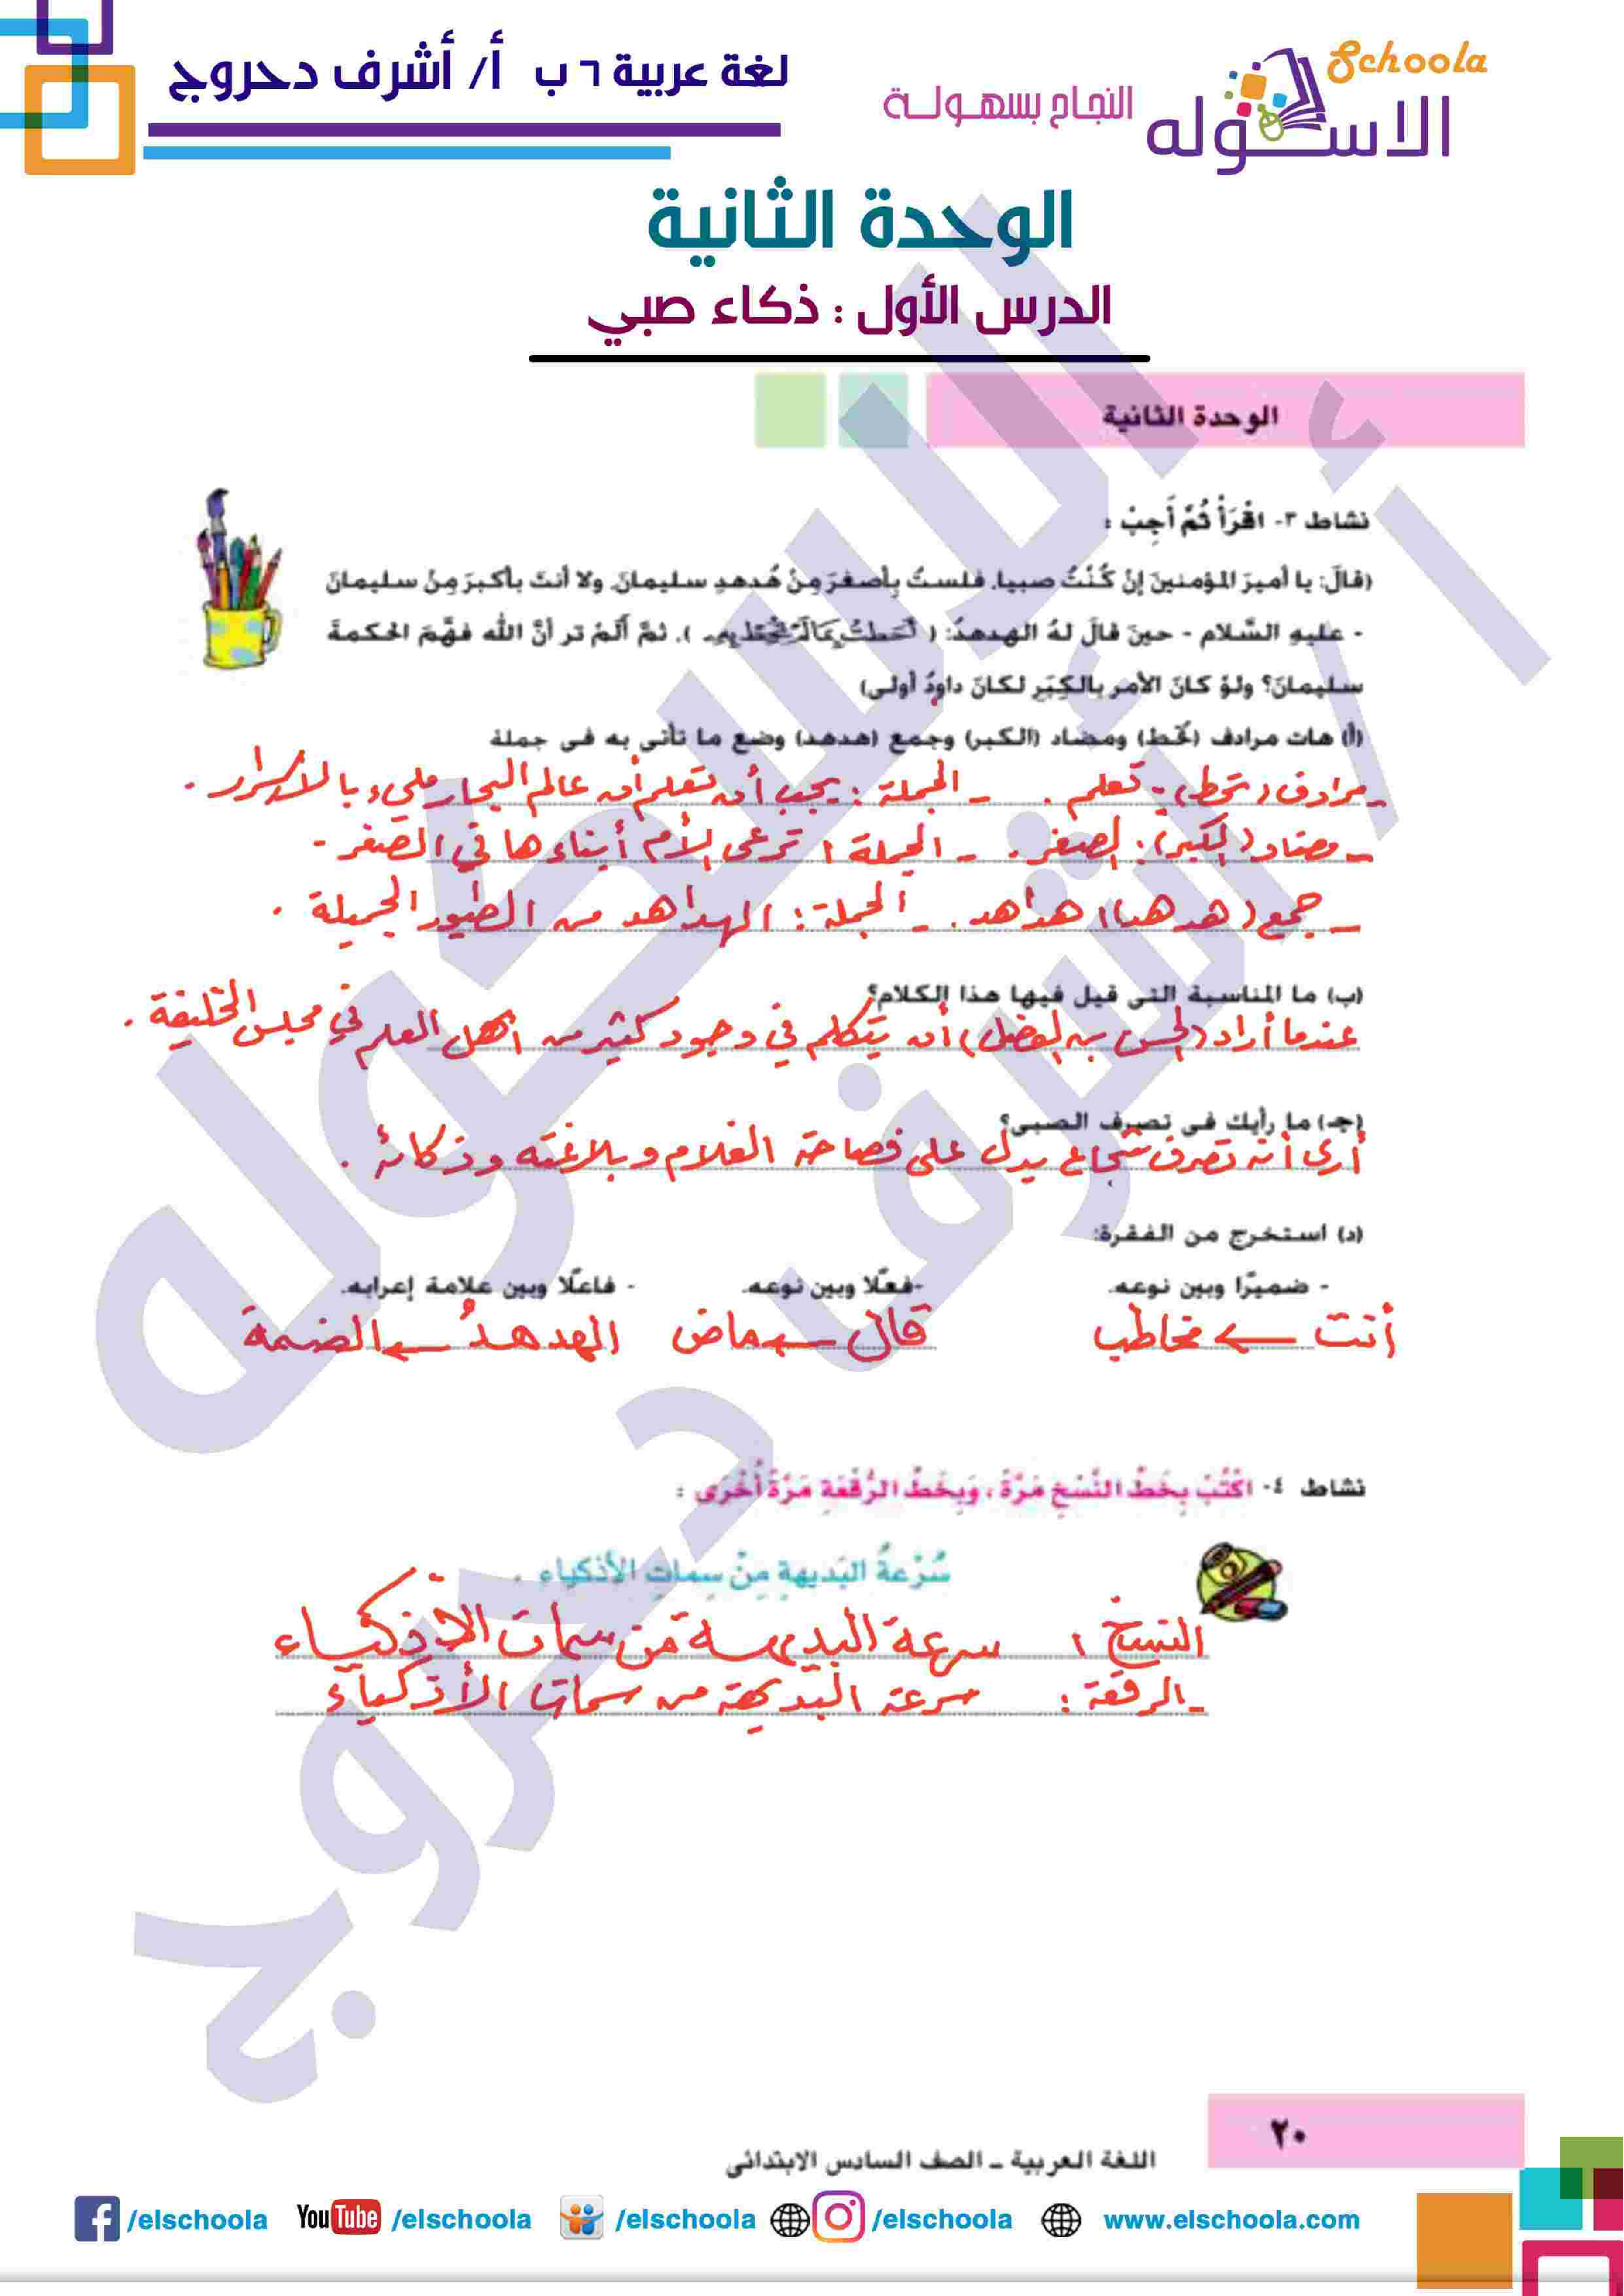 لغة عربية ٦ ب أ/ أشرف دحروج
Schoola
الاسكوله
النجاح بسهولة
الوحدة الثانية
الدرس الأول : ذكاء صبي
الوحدة الثانية
نشاط ٣- اقْرَأْ ثُمَّ أَجِبْ :
(قالَ: يا أميرَ المؤمنينَ إنْ كُنْتُ صبيا، فلستُ بِأصغرَ مِنْ هُدهدِ سليمانَ، ولا أنتَ بأكبرَ مِنْ سليمانَ
- عليهِ السَّلام - حينَ قالَ لهُ الهدهدُ: ( أَحَطتُ بِمَا لَمْ تُحِطْ بِهِ )، ثمَّ ألَمْ تر أنَّ الله فهَّمَ الحكمةَ
سليمانَ؟ ولوْ كانَ الأمر بالكِبَرِ لكانَ داودُ أولى)
(أ) هات مرادف (تُحط) ومضاد (الكبر) وجمع (هدهد) وضع ما تأتى به فى جملة
- مرادف (تحط): تعلم . - الجملة : يجب أن تعلم أن عالم البحار مليء بالأسرار .
- مضاد (الكبر): الصغر . - الجملة : ترعى الأم أبناءها في الصغر .
- جمع (هدهد): هداهد . - الجملة : الهداهد من الطيور الجميلة .
(ب) ما المناسبة التى قيل فيها هذا الكلام؟
عندما أراد (الحسن بن الفضل) أن يتكلم في وجود كثير من أهل العلم في مجلس الخليفة .
(جـ) ما رأيك فى تصرف الصبى؟
أرى أنه تصرف شجاع يدل على فصاحة الغلام وبلاغته وذكائه .
(د) استخرج من الفقرة:
- ضميرًا وبين نوعه. -فعلًا وبين نوعه. - فاعلًا وبين علامة إعرابه.
أنت ← مخاطب قال ← ماض الهدهدُ ← الضمة
نشاط ٤- اكْتُبْ بِخَطِّ النَّسْخِ مَرَّةً ، وَبِخَطِّ الرُّقْعَةِ مَرَّةً أُخْرَى :
سُرْعةُ البَديهةِ مِنْ سِماتِ الأذكياءِ .
النسخ : سرعة البديهة من سمات الأذكياء
- الرقعة : سرعة البديهة من سمات الأذكياء
٢٠
اللغة العربية ـ الصف السادس الابتدائى
/elschoola YouTube /elschoola /elschoola /elschoola www.elschoola.com
أ/ أشرف دحروج
الاسكوله